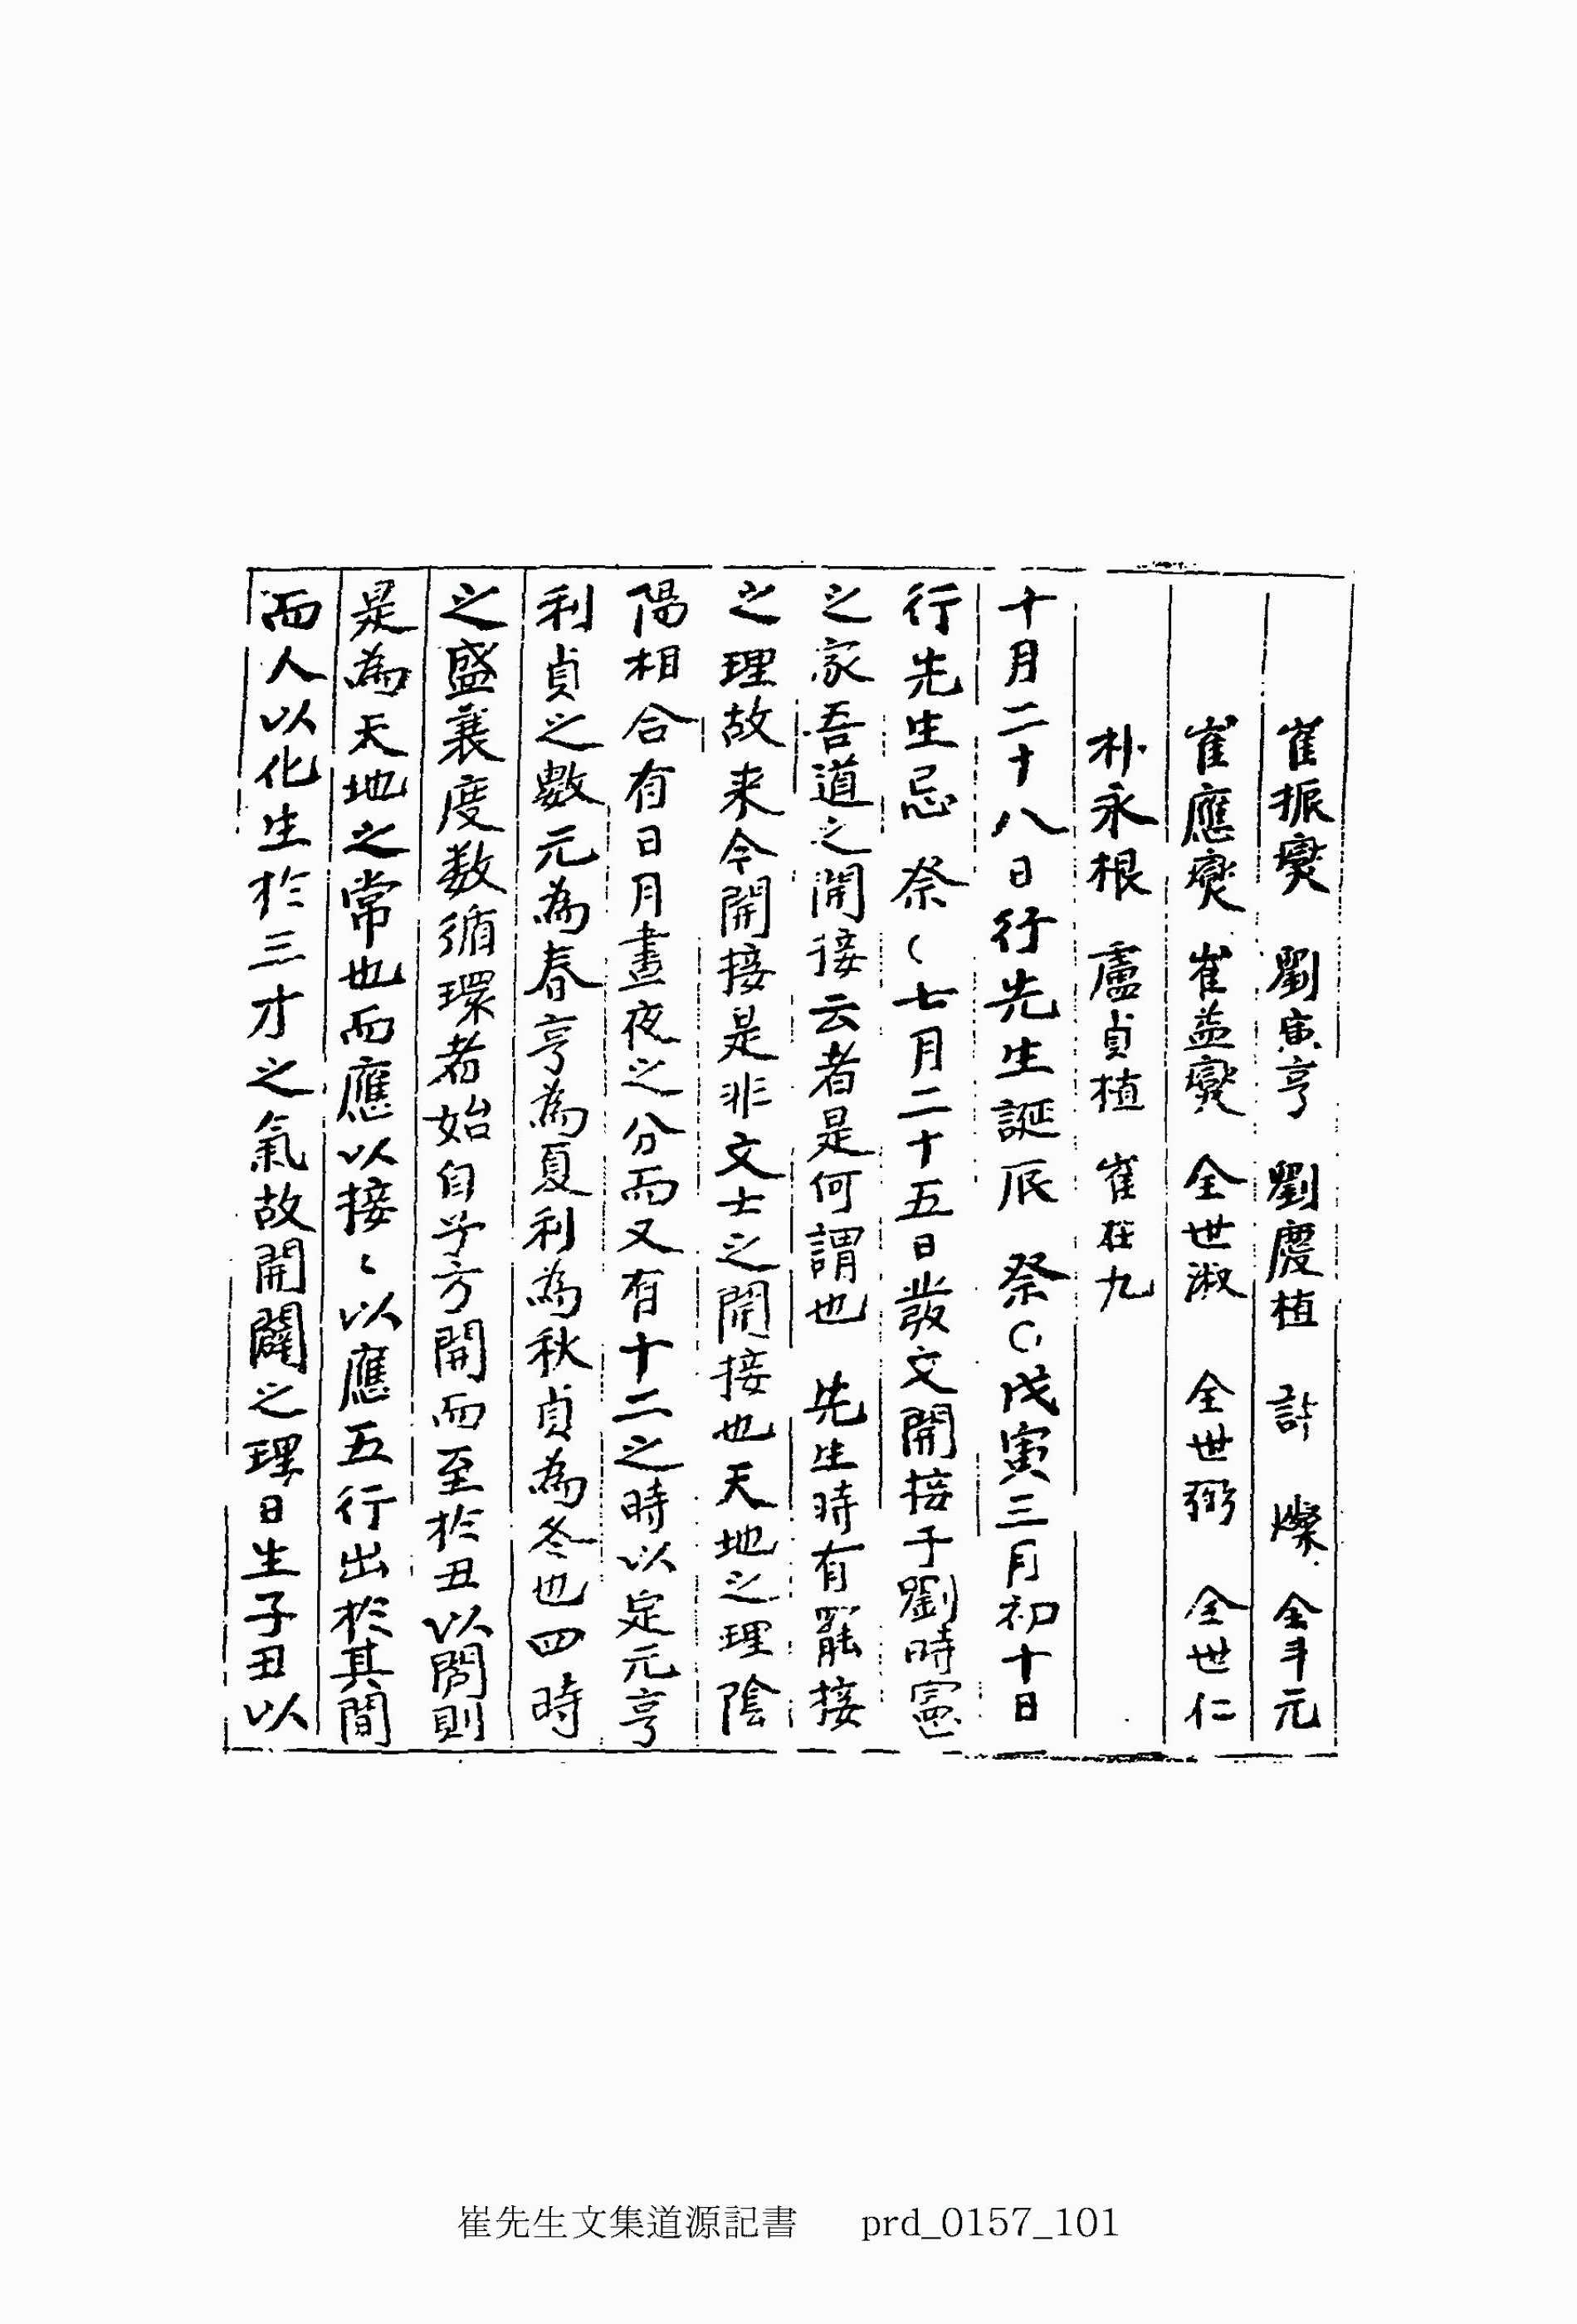 崔振燮 劉寅亨 劉慶植 許燦 全斗元
崔應燮 崔益燮 全世淑 全世弼 全世仁
朴永根 盧貞植 崔在九
十月二十八日行先生誕辰 祭○戊寅三月初十日
行先生忌 祭○七月二十五日發文開接于劉時憲
之家吾道之開接云者是何謂也 先生時有罷接
之理故来今開接是非文士之開接也天地之理陰
陽相合有日月晝夜之分而又有十二之時以定元亨
利貞之數元為春亨為夏利為秋貞為冬也四時
之盛衰度数循環者始自子方開而至於丑以闢則
是為天地之常也而應以接〻以應五行出於其間
而人以化生於三才之氣故開闢之理日生子丑以
崔先生文集道源記書 prd_0157_101